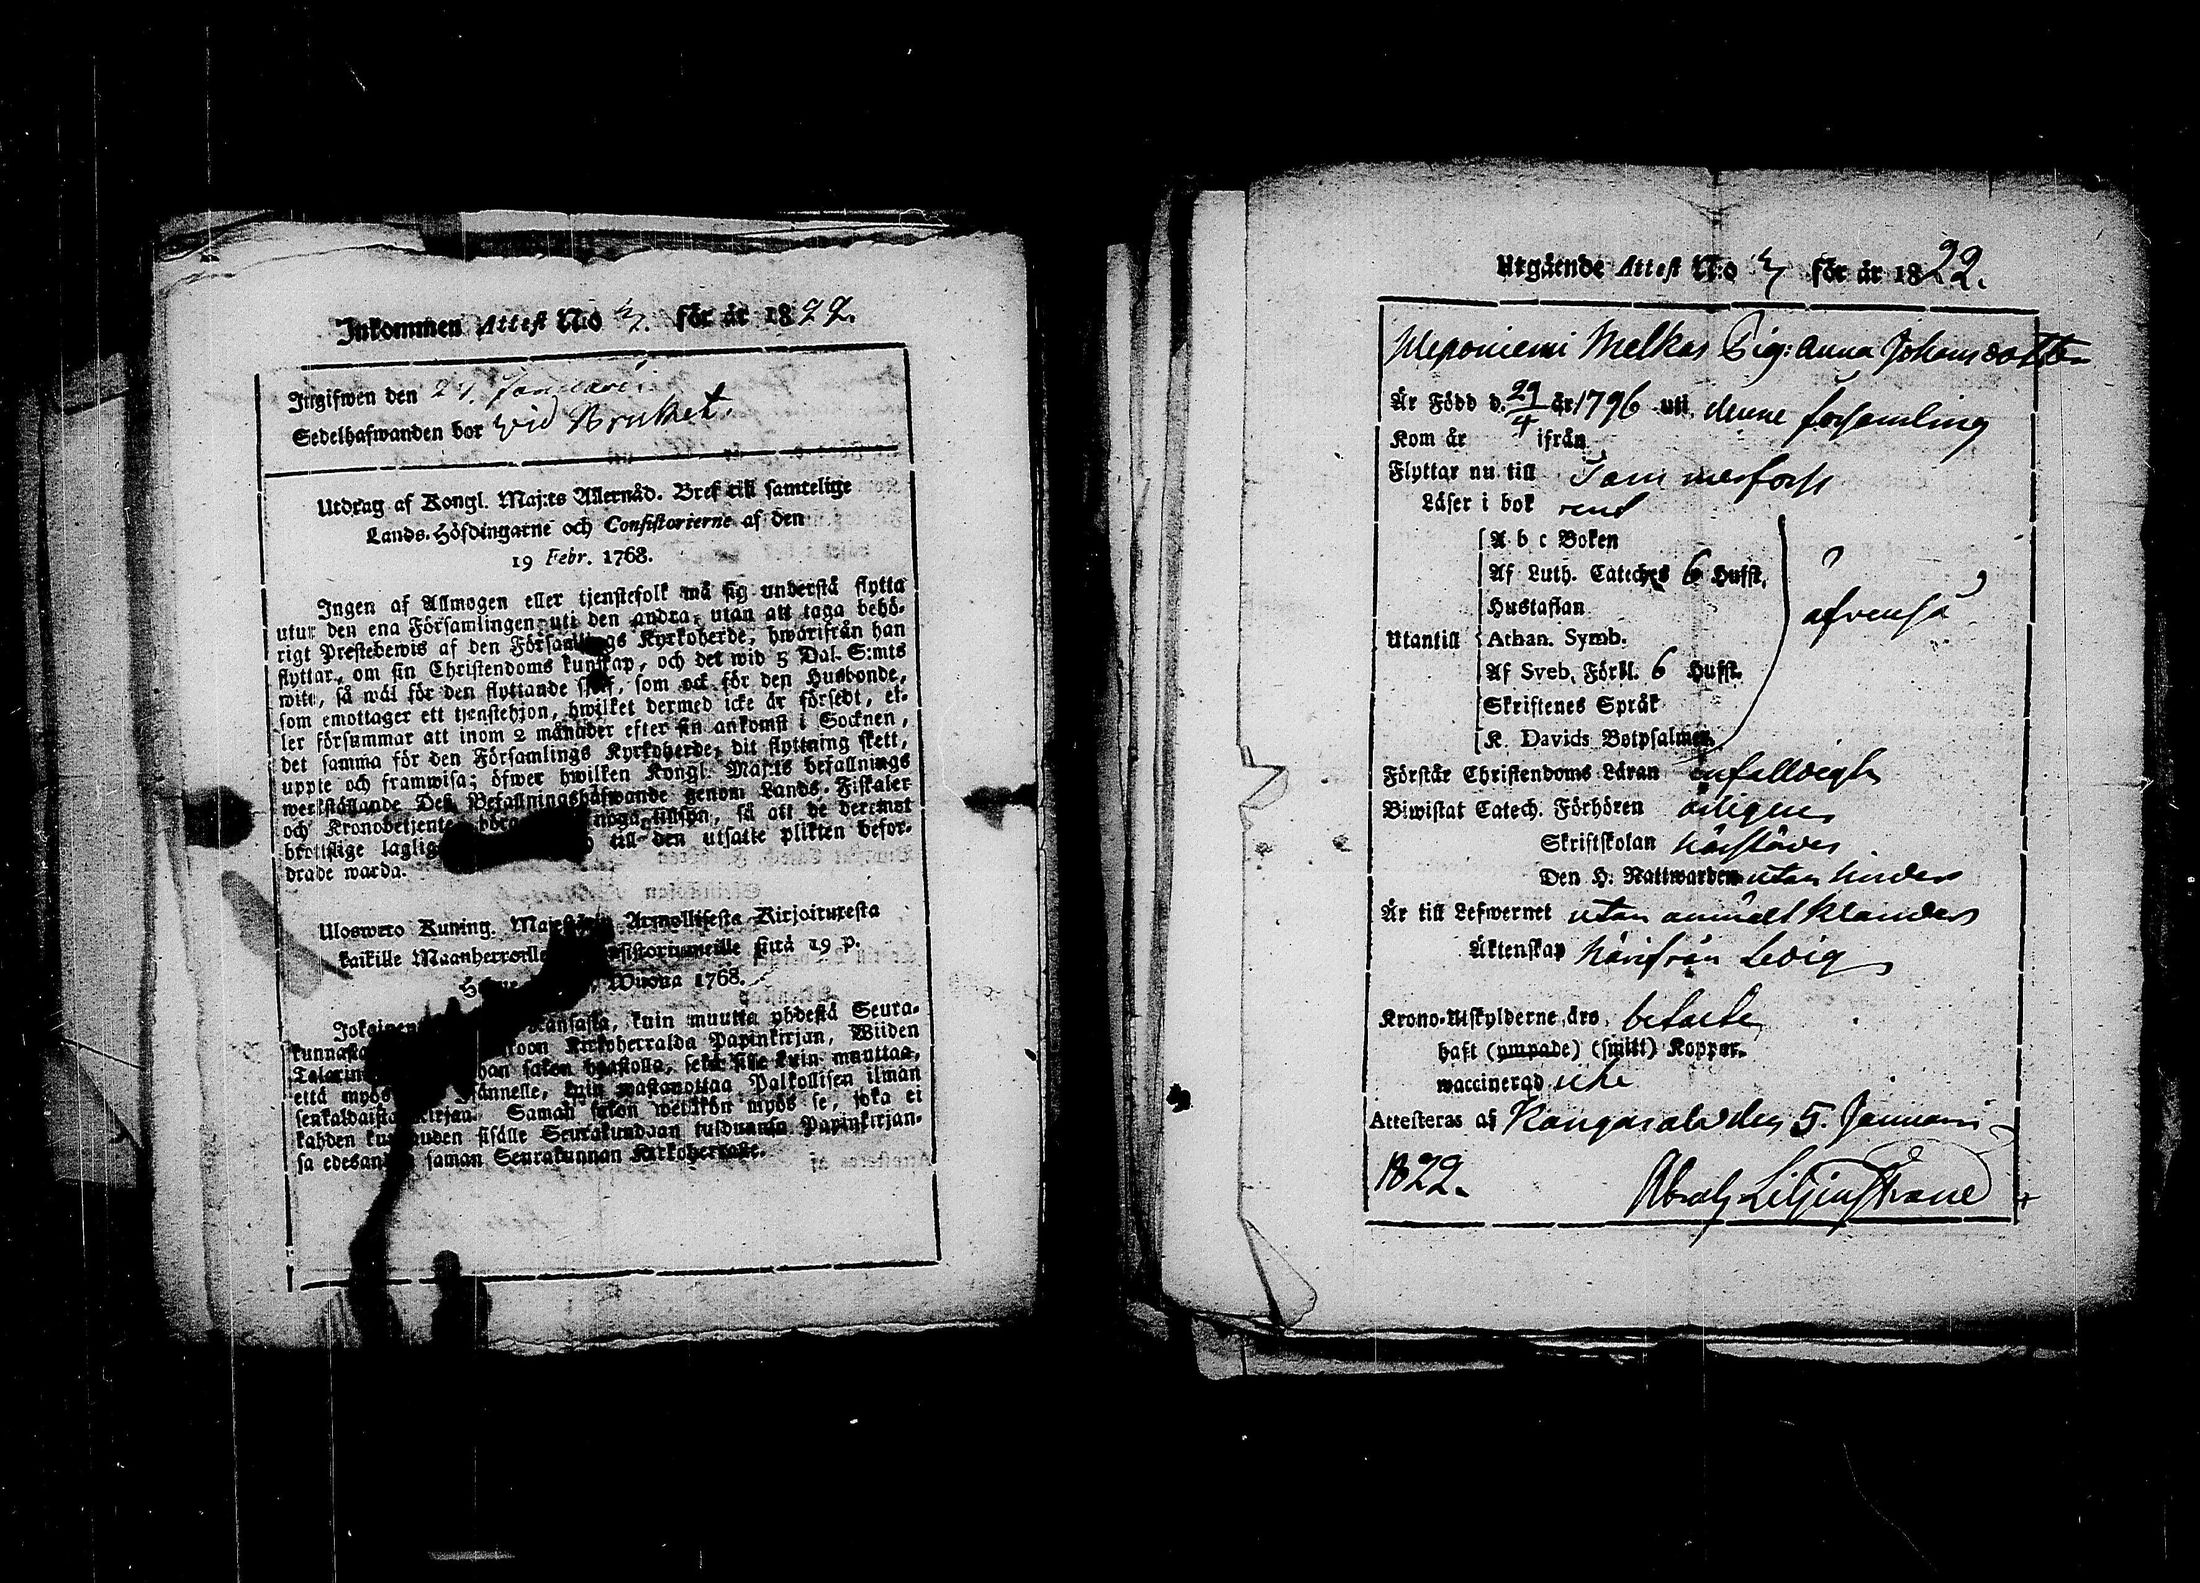 Inkommen Attest N:o 3. för år 1822.
Ingifwen den 27. Januari
Sedelhafwanden bor wid Bruket.
Utdrag af Kongl. Maj:ts Allernåd. Bref till samtelige
Lands-Höfdingarne och Consistorierne af den
19 Febr. 1768.
Ingen af Allmogen eller tjenstefolk må sig understå flytta
utur den ena Församlingen uti den andra, utan att taga behö-
rigt Prestebewis af den Församlings Kyrkoherde, hwarifrån han
flyttar, om sin Christendoms kunskap, och det wid 5 Dal. S:mts
wite, så wäl för den flyttande sjelf, som ock för den Husbonde,
som emottager ett tjenstehjon, hwilket dermed icke är försedt, el-
ler försummar att inom 2 månader efter sin ankomst i Socknen,
det samma för den Församlings Kyrkoherde, dit flyttning skett,
uppte och framwisa; öfwer hwilken Kongl. Maj:ts befallnings
werkställande Deß Befallningshafwande genom Lands-Fiskaler
och Kronobetjente böra noga tillsyn, så att de deremot
brottslige laglig till den utsatte plikten befor-
drade warda.
Ulosweto Kuning. Majestetin Armollisesta Kirjoituxesta
kaikille Maanherroille sistoriumeille siitä 19 p.
H Wuona 1768.
Jokainen kansasta, kuin muutta yhdestä Seura-
kunnasta toon Kirkoherralda Papinkirjan, Wiiden
Talarin han sakon haastolla, sekä sille kuin muuttaa,
että myös Isännelle, kuin wastanottaa Palkollisen ilman
senkaldaista Kirjan. Saman sakon wetäkön myös se, joka ei
kahden kuukauden sisälle Seurakundaan tulduansa Papinkirjan-
sa edesanna saman Seurakunnan Kirkoherralle.
Utgående Attest N:o 3 för år 1822.
Meponiemi Melkas Pig: Anna Johansdotter
Är Född d. 29/4 år 1796 uti denne församling
Kom år ifrån
Flyttar nu till Tammerforss
Läser i bok rent
A b c Boken
Af Luth. Cateches 6 Hufst.
Hustaflan
Utantill Athan. Symb.
Af Sveb. Förkl. 6 Hufst.
Skriftenes Språk
K. Davids Botpsalmer
äfvenså
Förstår Christendoms Läran enfaldigt
Biwistat Catech. Förhören årligen
Skriftskolan härstädes
Den H. Nattwarden utan hinder
Är till Lefwernet utan anmält klander
Äktenskap härifrån Ledig
Krono-Utskylderne äro betalte
haft (ympade) (smitt) Koppor.
waccinerad icke
Attesteras af Kangasala den 5. Januari
1822.
Abrah Liljenstrand